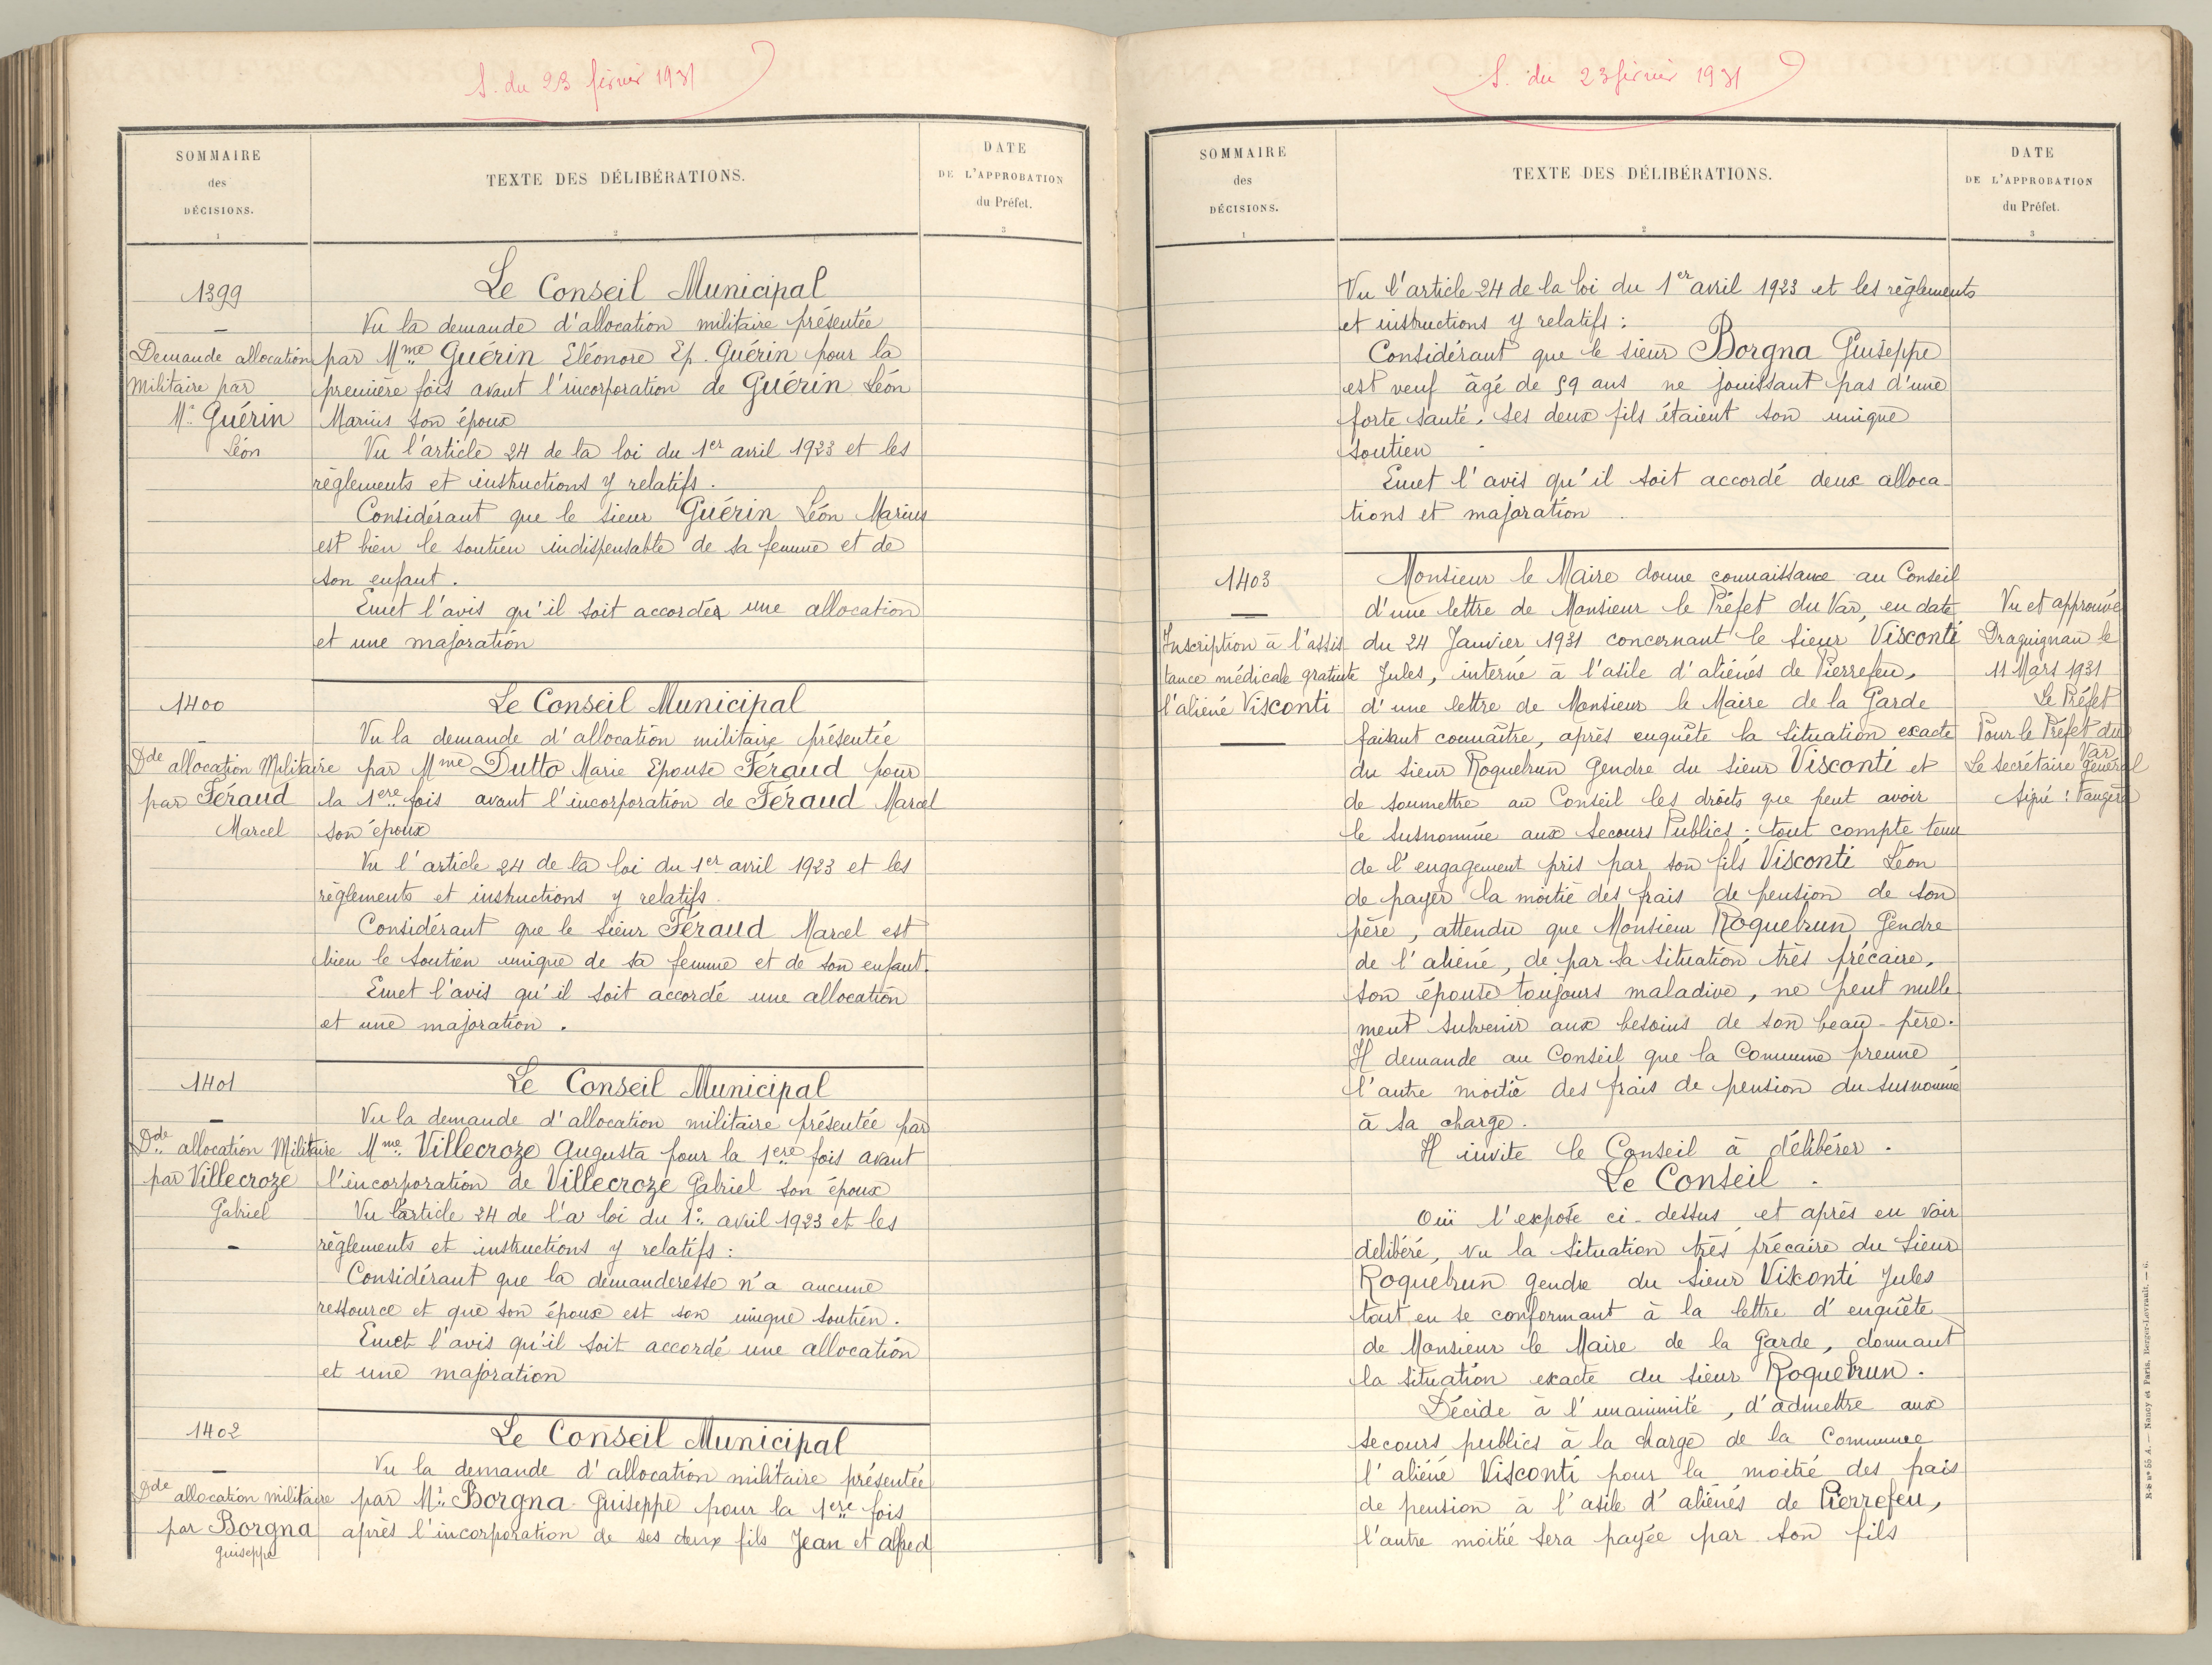 S. du 23 février 1931
SOMMAIRE
des
DÉCISIONS.
1
TEXTE DES DÉLIBÉRATIONS.
2
DATE
DE L'APPROBATION
du Préfet.
3
1399
Demande allocation
militaire par
Mr Guérin
Léon
Le Conseil Municipal
Vu la demande d'allocation militaire présentée
par Mme Guérin Eléonore Ep. Guérin pour la
première fois avant l'incorporation de Guérin Léon
Marius son époux
Vu l'article 24 de la loi du 1er avril 1923 et les
règlements et instructions y relatifs.
Considérant que le sieur Guérin Léon Marius
est bien le soutien indispensable de sa femme et de
son enfant.
Emet l'avis qu'il soit accorder une allocation
et une majoration
1400
Dde allocation Militaire
par Féraud
Marcel
Le Conseil Municipal
Vu la demande d'allocation militaire présentée
par Mme Dutto Marie Epouse Féraud pour
la 1ere fois avant l'incorporation de Féraud Marcel
son époux
Vu l'article 24 de la loi du 1er avril 1923 et les
règlements et instructions y relatifs.
Considérant que le sieur Féraud Marcel est
bien le soutien unique de sa femme et de son enfant.
Emet l'avis qu'il soit accordé une allocation
et une majoration.
1401
Dde allocation Militaire
par Villecroze
Gabriel
Le Conseil Municipal
Vu la demande d'allocation militaire présentée par
Mme Villecroze Augusta pour la 1ere fois avant
l'incorporation de Villecroze Gabriel son époux
Vu l'article 24 de l'a loi du 1er avril 1923 et les
règlements et instructions y relatifs :
Considérant que la demanderesse n'a aucune
ressource et que son époux est son unique soutien.
Emet l'avis qu'il soit accordé une allocation
et une majoration
1402
Dde allocation militaire
par Borgna
Guiseppe
Le Conseil Municipal
Vu la demande d'allocation militaire présentée
par Mr Borgna Guiseppe pour la 1ere fois
après l'incorporation de ses deux fils Jean et Alfred
S. du 23 février 1931
SOMMAIRE
des
DÉCISIONS.
1
TEXTE DES DÉLIBÉRATIONS.
2
DATE
DE L'APPROBATION
du Préfet.
3
Vu l'article 24 de la loi du 1er avril 1923 et les règlements
et instructions y relatifs :
Considérant que le sieur Borgna Guiseppe
est veuf âgé de 59 ans ne jouissant pas d'une
forte santé, ses deux fils étaient son unique
soutien
Emet l'avis qu'il soit accordé deux alloca-
tions et majoration.
1403
Inscription à l'assis
tance médicale gratuite
l'aliéné Visconti
Monsieur le Maire donne connaissance au Conseil
d'une lettre de Monsieur le Préfet du Var, en date
du 24 Janvier 1931 concernant le sieur Visconti
Jules, interné à l'asile d'aliénés de Pierrefeu,
d'une lettre de Monsieur le Maire de la Garde
faisant connaître, après enquête la situation exacte
du sieur Roquebrun Gendre du sieur Visconti et
de soumettre au Conseil les droits que peut avoir
le susnommée aux Secours Publics ; tout compte tenu
de l'engagement pris par son fils Visconti Léon
de payer la moitié des frais de pension de son
père, attendu que Monsieur Roquebrun Gendre
de l'aliéné, de par sa situation très précaire,
son épouse toujours maladive, ne peut nulle
ment subvenir aux besoins de son beau-père.
Il demande au Conseil que la Commune prenne
l'autre moitié des frais de pension du susnommé
à sa charge.
Il invite le Conseil à délibérer.
Le Conseil.
Ouï l'exposé ci-dessus et après en voir
délibéré, vu la situation très précaire du sieur
Roquebrun gendre du sieur Visconti Jules
tout en se conformant à la lettre d'enquête
de Monsieur le Maire de la Garde, donnant
la situation exacte du sieur Roquebrun.
Décide à l'unanimité, d'admettre aux
secours publics à la charge de la Commune
l'aliéné Visconti pour la moitié des frais
de pension à l'asile d'aliénés de Pierrefeu,
l'autre moitié sera payée par son fils
Vu et approuvé
Draguignan le
11 Mars 1931
Le Préfet
Pour le Préfet du
Var
Le Secrétaire Général
signé :
Nancy et Paris, Berger-Levrault. — 6.